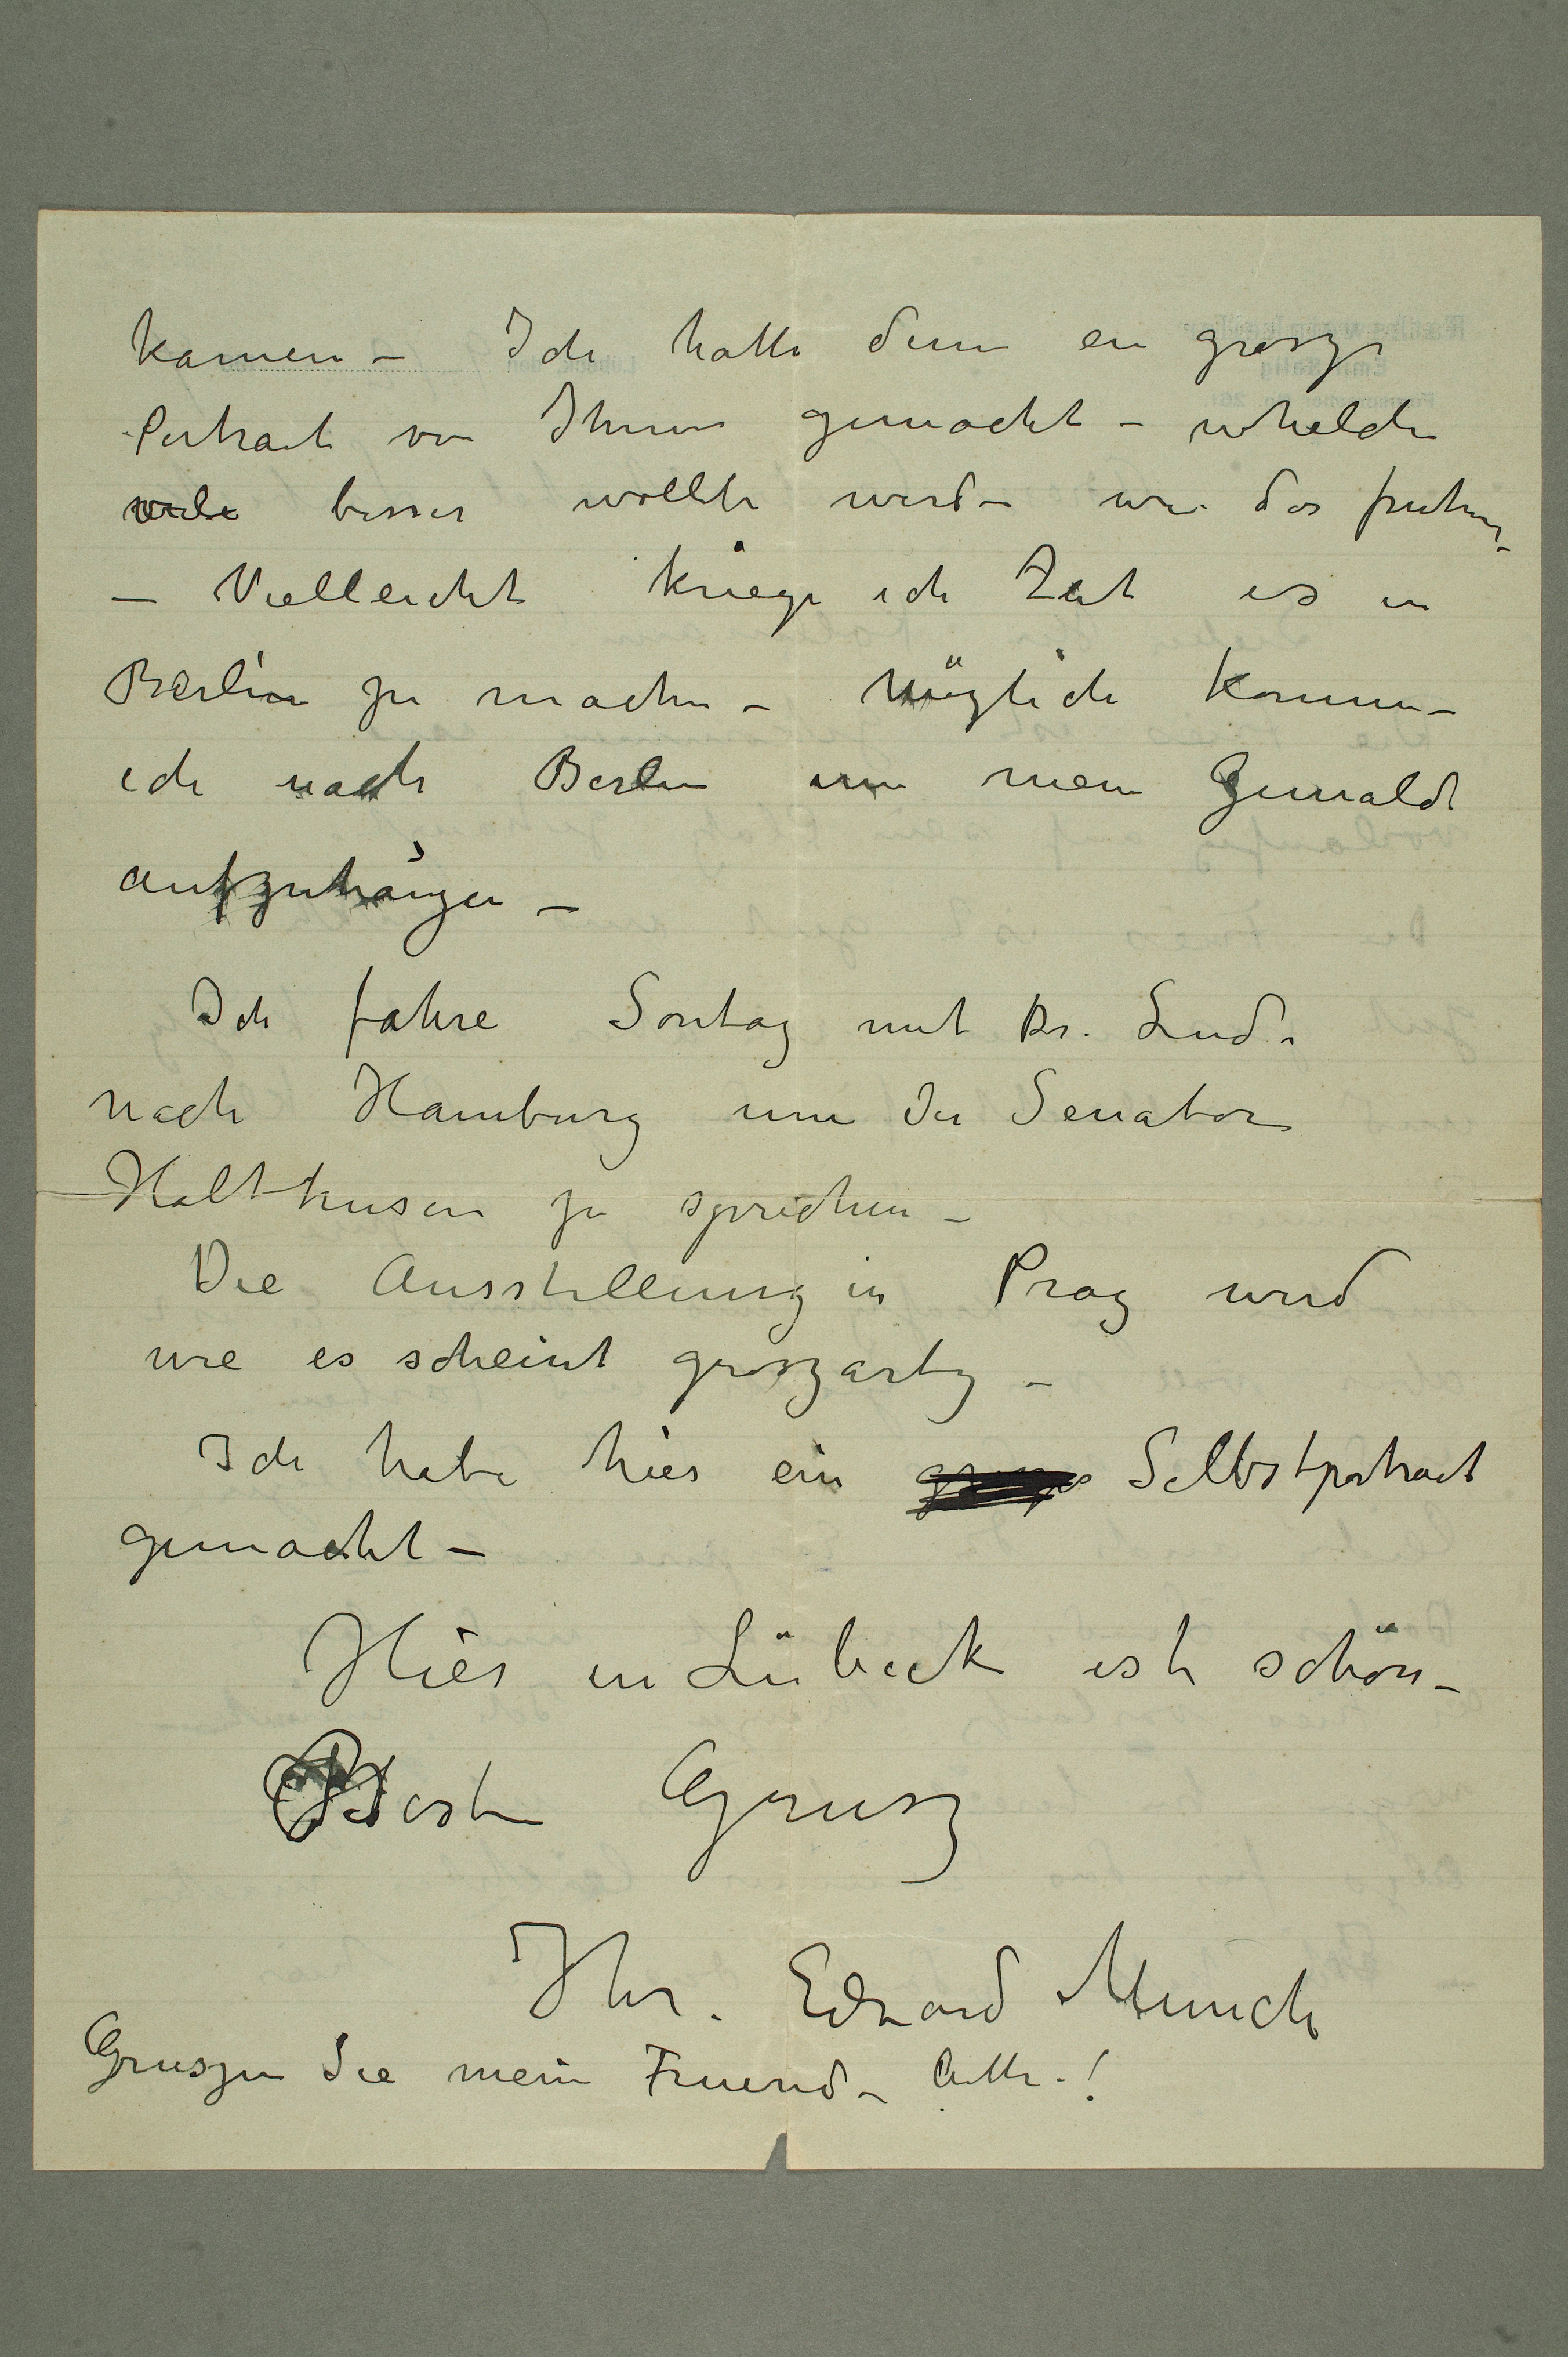 kamen – Ich hatte denn ein grosze
Portrait von Ihnen gemacht – whelche
viele besser wollte werde wie das fruhere
– Vielleicht kriege ich Zeit es in
Berlin zu machen – Möglich komme
ich nach Berlin um mein Gemalde
aufzuhängen –
Ich fahre Sontag mit Dr. Linde
nach Hamburg um der Senator
Holthusen zu sprechen –
Die Ausstellung in Prag wird
wie es scheint groszartig –
Ich habe hier ein Selbstportrait
gemacht –
Hier in Lübeck ist schön –
Beste Grusz
Ihr. Edvard Munch
Gruszen Sie mein Freund